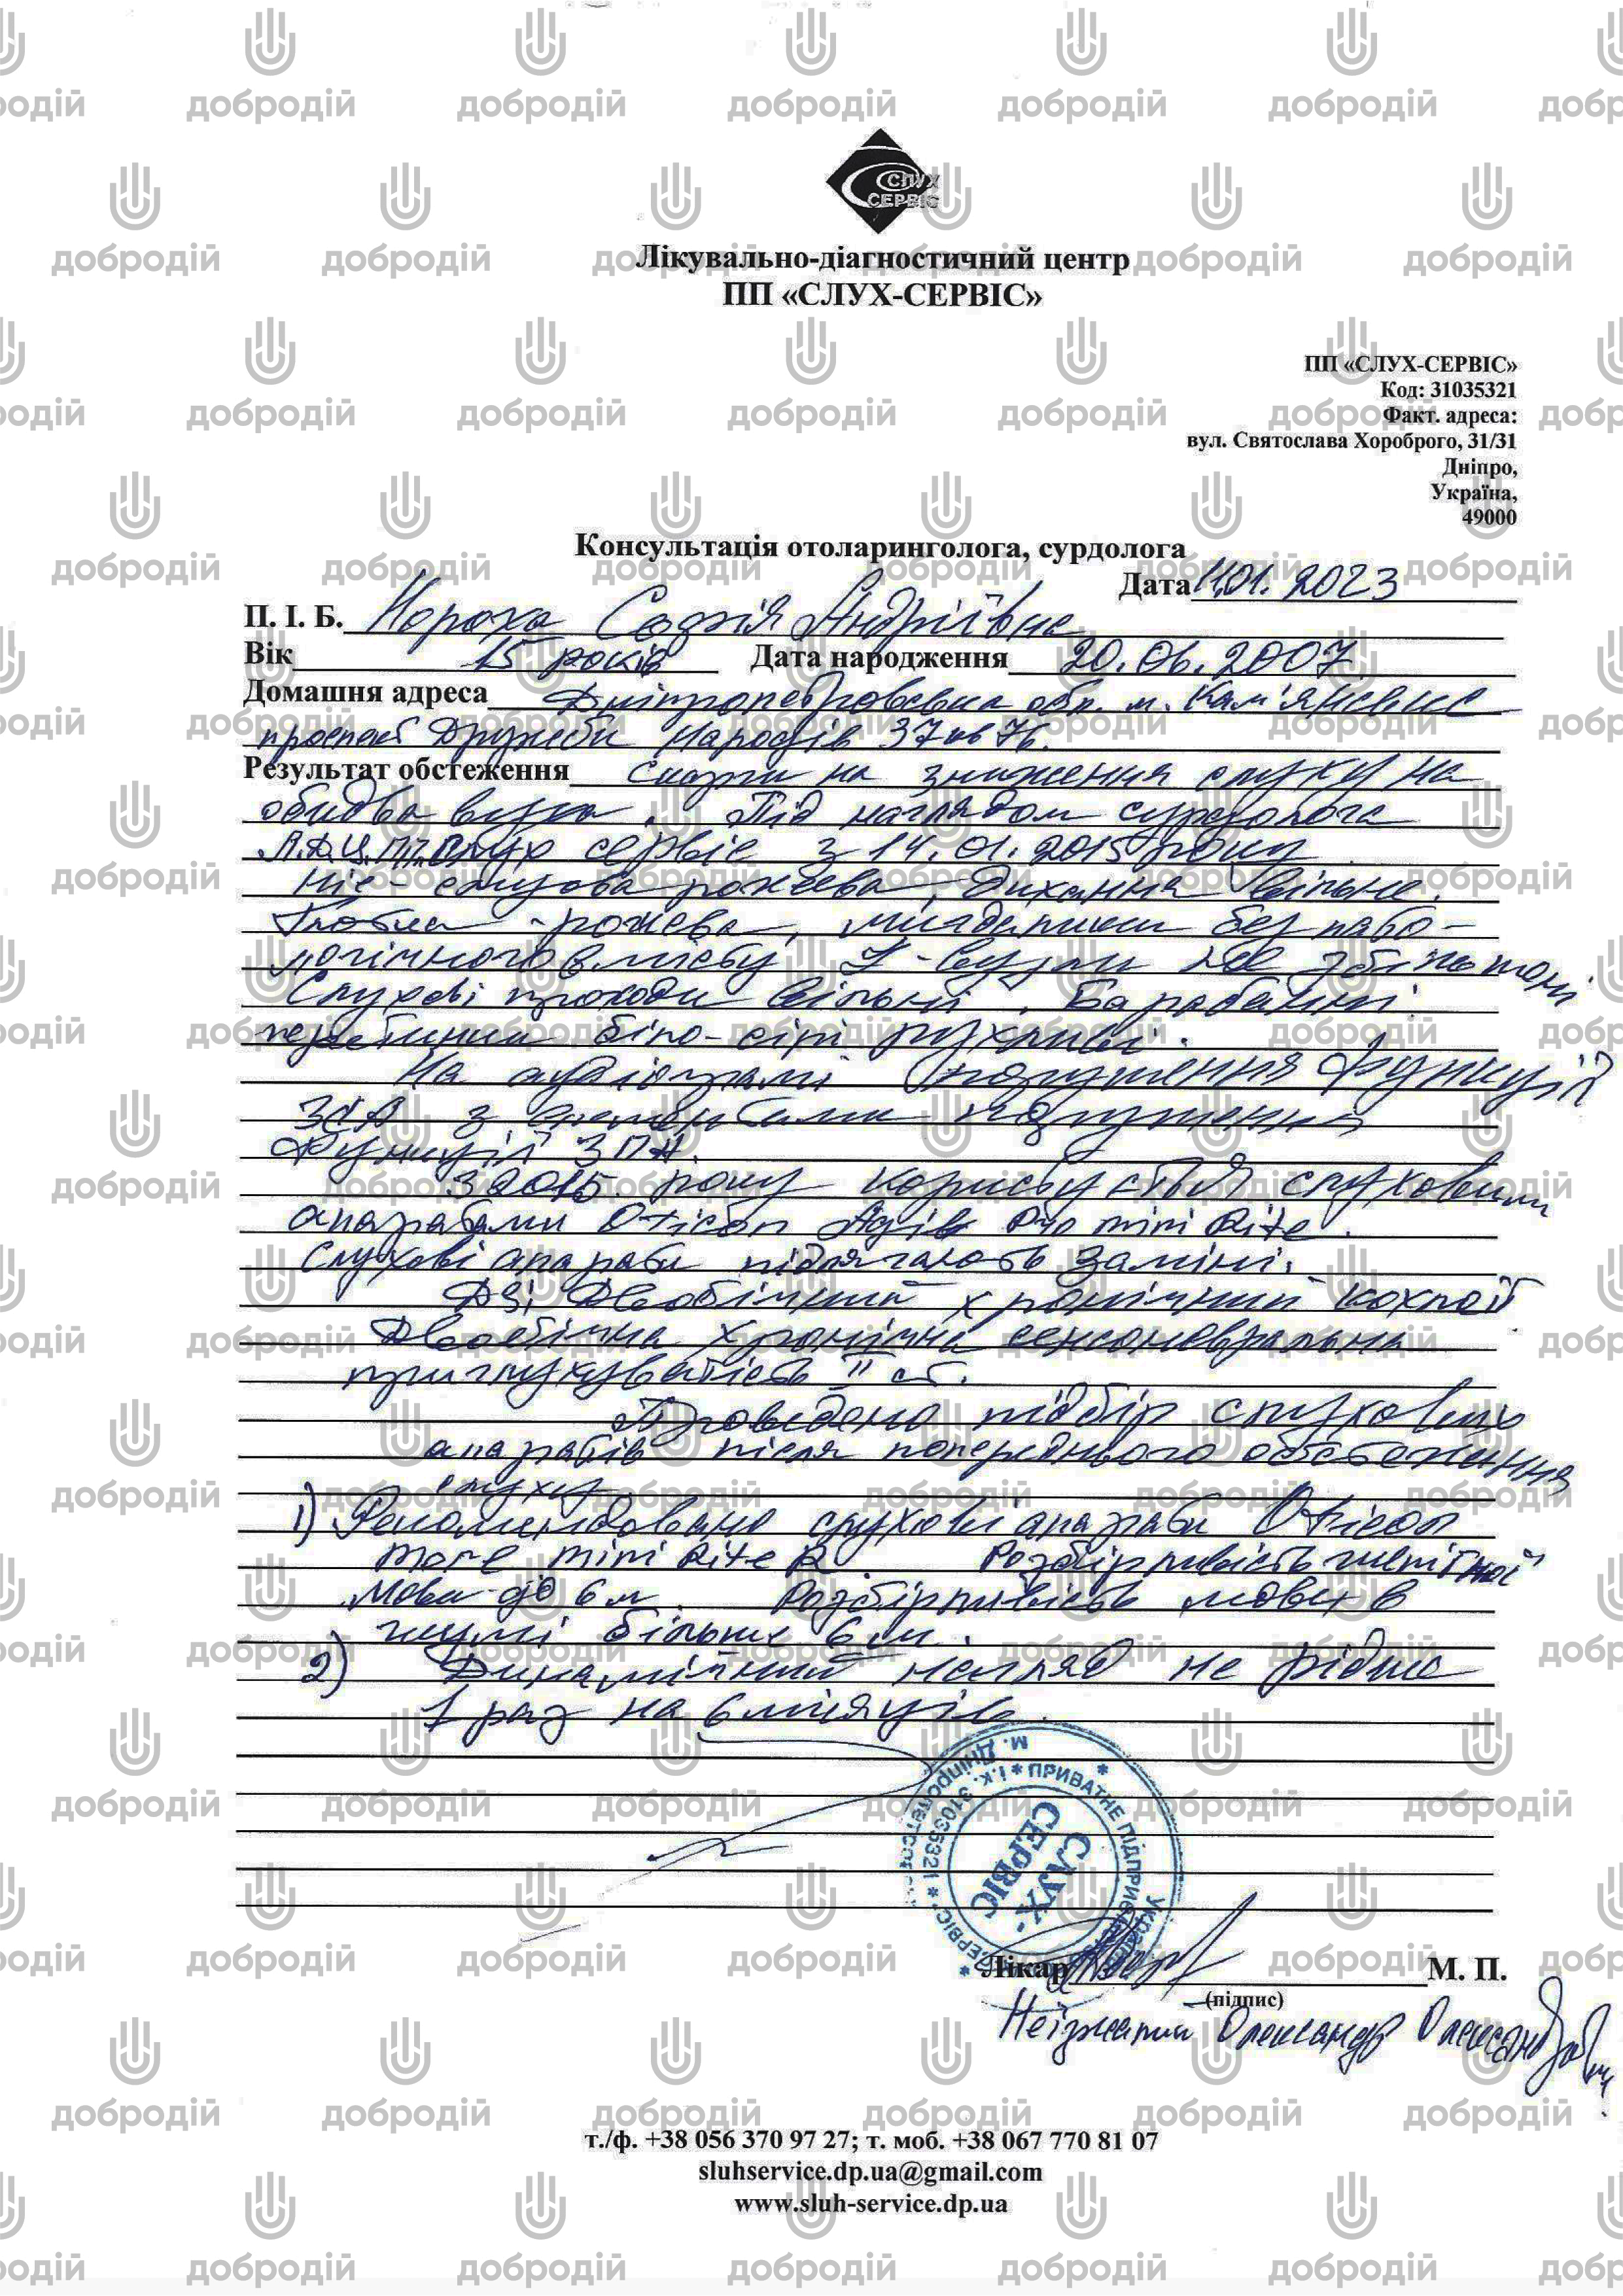 СЛУХ
СЕРВІС
Лікувально-діагностичний центр
ПП «СЛУХ-СЕРВІС»
ПП «СЛУХ-СЕРВІС»
Код: 31035321
Факт. адреса:
вул. Святослава Хороброго, 31/31
Дніпро,
Україна,
49000
Консультація отоларинголога, сурдолога
Дата 11.01.2023
П. І. Б. Нороха Софія Андріївна
Вік 15 років Дата народження 20.06.2007
Домашня адреса Дніпропетровська обл. м. Кам'янське
проспект Дружби Народів 37 кв 76.
Результат обстеження Скарги на зниження слуху на
обидва вуха. Під наглядом сурдолога
Л.Д.Ц. ПП Слух сервіс з 14.01.2015 року
Ніс - слизова рожева, дихання вільне.
Глотка - рожева, мигдалики без пато-
логічного вмісту, л-вузли не збільшені
Слухові проходи вільні. Барабанні
перетинки біло-сірі рухливі.
На аудіограмі порушення функції
ЗСА з елементами порушення
функції ЗПА.
З 2015 року користується слуховими
апаратами Oticon Pro mini Rite.
Слухові апарати підлягають заміні.
DS: Двобічний хронічний кохлеїт
Двобічна хронічна сенсоневральна
приглухуватість II ст.
Проведено підбір слухових
апаратів після попереднього обстеження
слуху
1) Рекомендовано слухові апарати Oticon
more mini Rite R. Розбірливість шепітної
мови до 6 м. Розбірливість мови в
шумі більше 6 м.
2) Динамічний нагляд не рідше
1 раз на 6 місяців.
м. Дніпропетровськ
* ПРИВАТНЕ ПІДПРИЄМСТВО * І.К. 31035321 *
Україна
СЛУХ-
СЕРВІС
Лікар М. П.
(підпис)
Олександр Олександрович
т./ф. +38 056 370 97 27; т. моб. +38 067 770 81 07
sluhservice.dp.ua@gmail.com
www.sluh-service.dp.ua
добродій